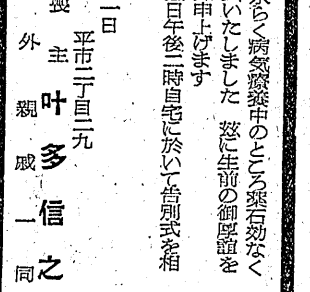 永らく病気療養中のところ薬石効なく
いたしました 玆に生前の御厚誼を
申上げます
日午後二時自宅に於いて告別式を相
一日
平市二丁目二九
喪主 叶多信之
外 親戚一同